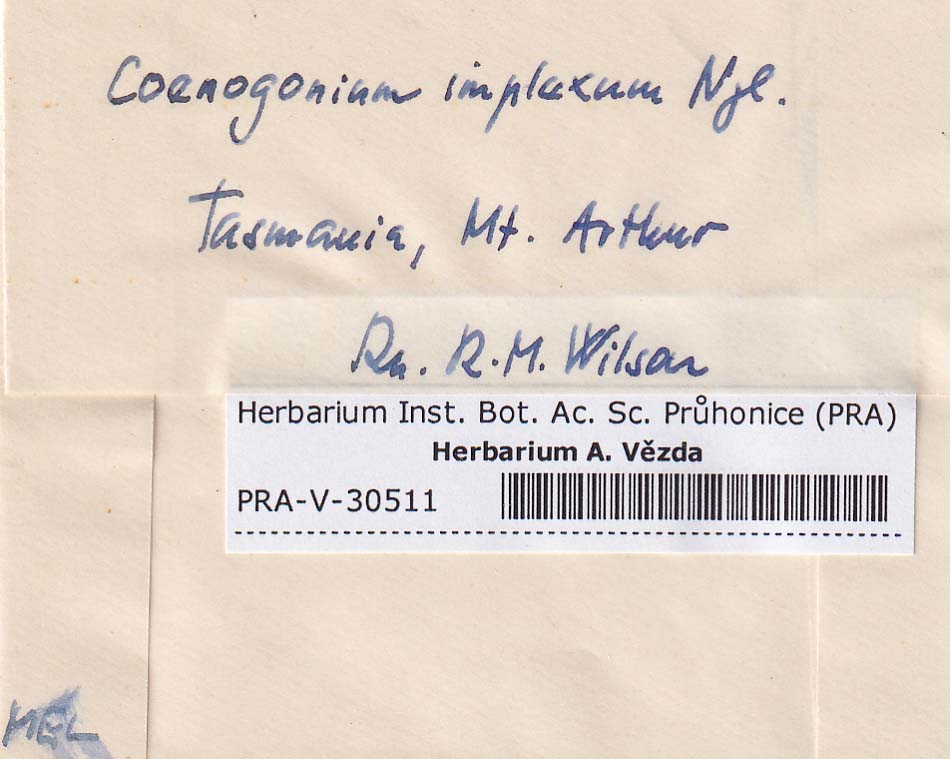 Coenogonium implexum Nyl.
Tasmania, Mt. Arthur
R. M. Wilson
Herbarium Inst. Bot. Ac. Sc. Průhonice (PRA)
Herbarium A. Vězda
PRA-V-30511
MEL